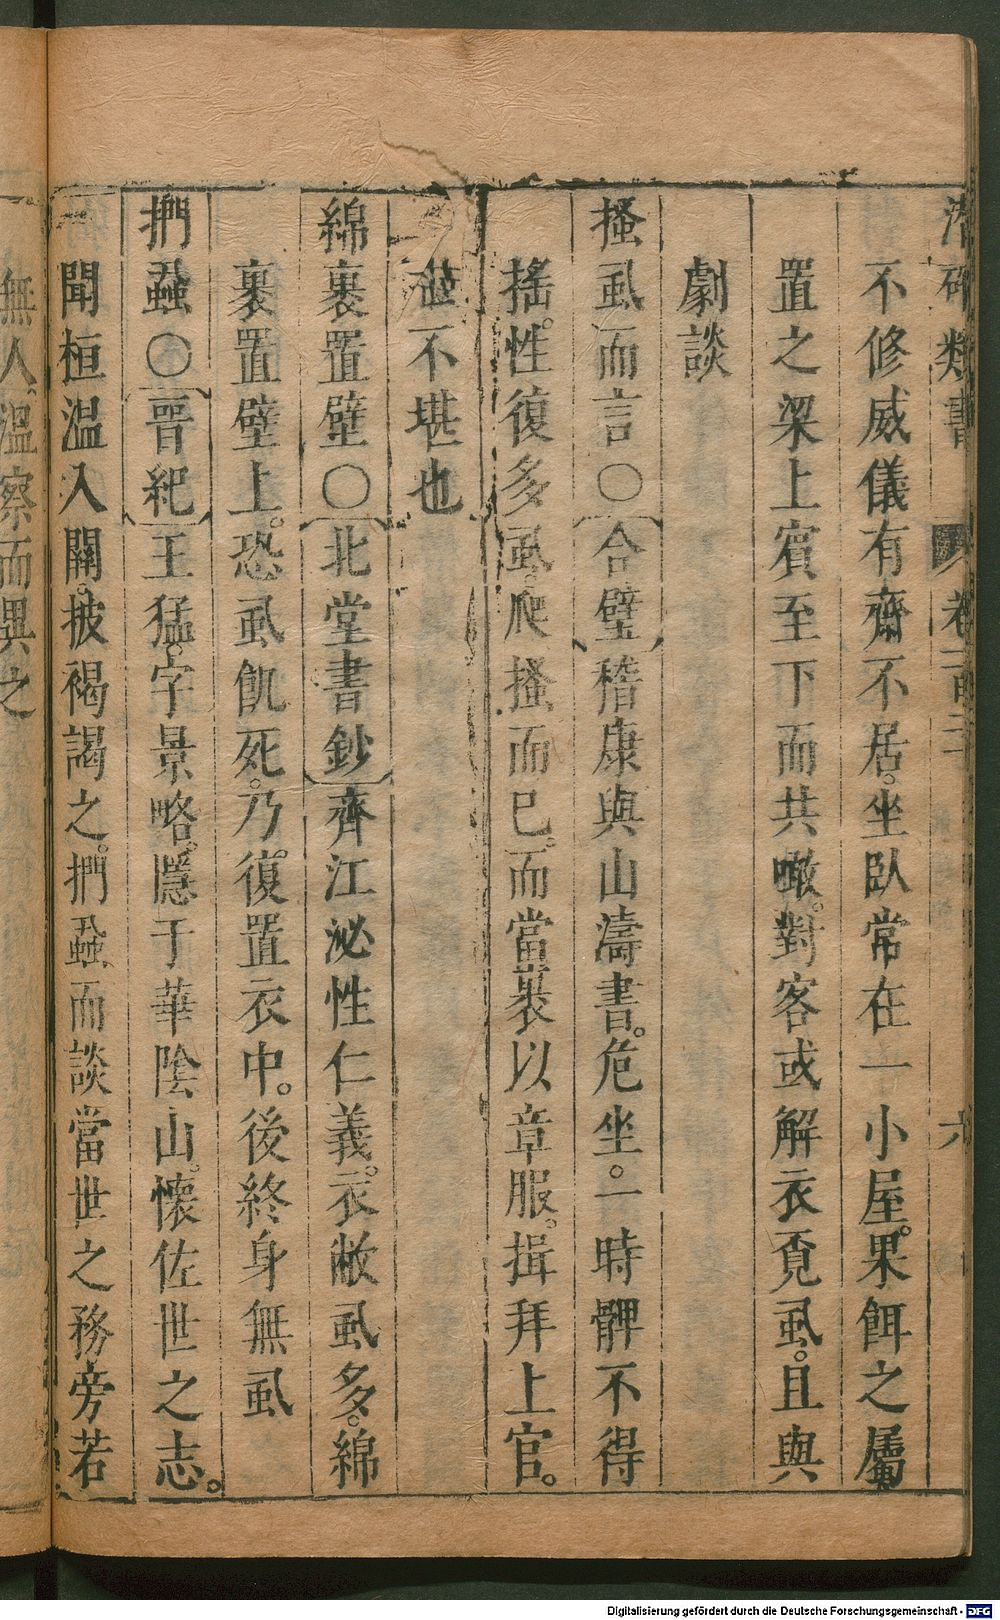 潛確類書 卷一百二十 六
不修威儀有齋不居。坐臥常在一小屋。果餌之屬
置之梁上賓至下而共噉。對客或解衣覓虱。且與
劇談
搔虱而言〇合璧嵇康與山濤書。危坐。一時髀不得
搖。性復多虱。爬搔而已。而當裹以章服。揖拜上官。
不堪也
綿裹置壁〇北堂書鈔齊江泌性仁義。衣敝虱多。綿
裹置壁上。恐虱飢死。乃復置衣中。後終身無虱
捫蝨〇晉紀王猛。字景略。隱于華陰山。懷佐世之志。
聞桓溫入關。披褐謁之。捫蝨而談當世之務旁若
無人。溫察而異之
Digitalisierung gefördert durch die Deutsche Forschungsgemeinschaft - DFG